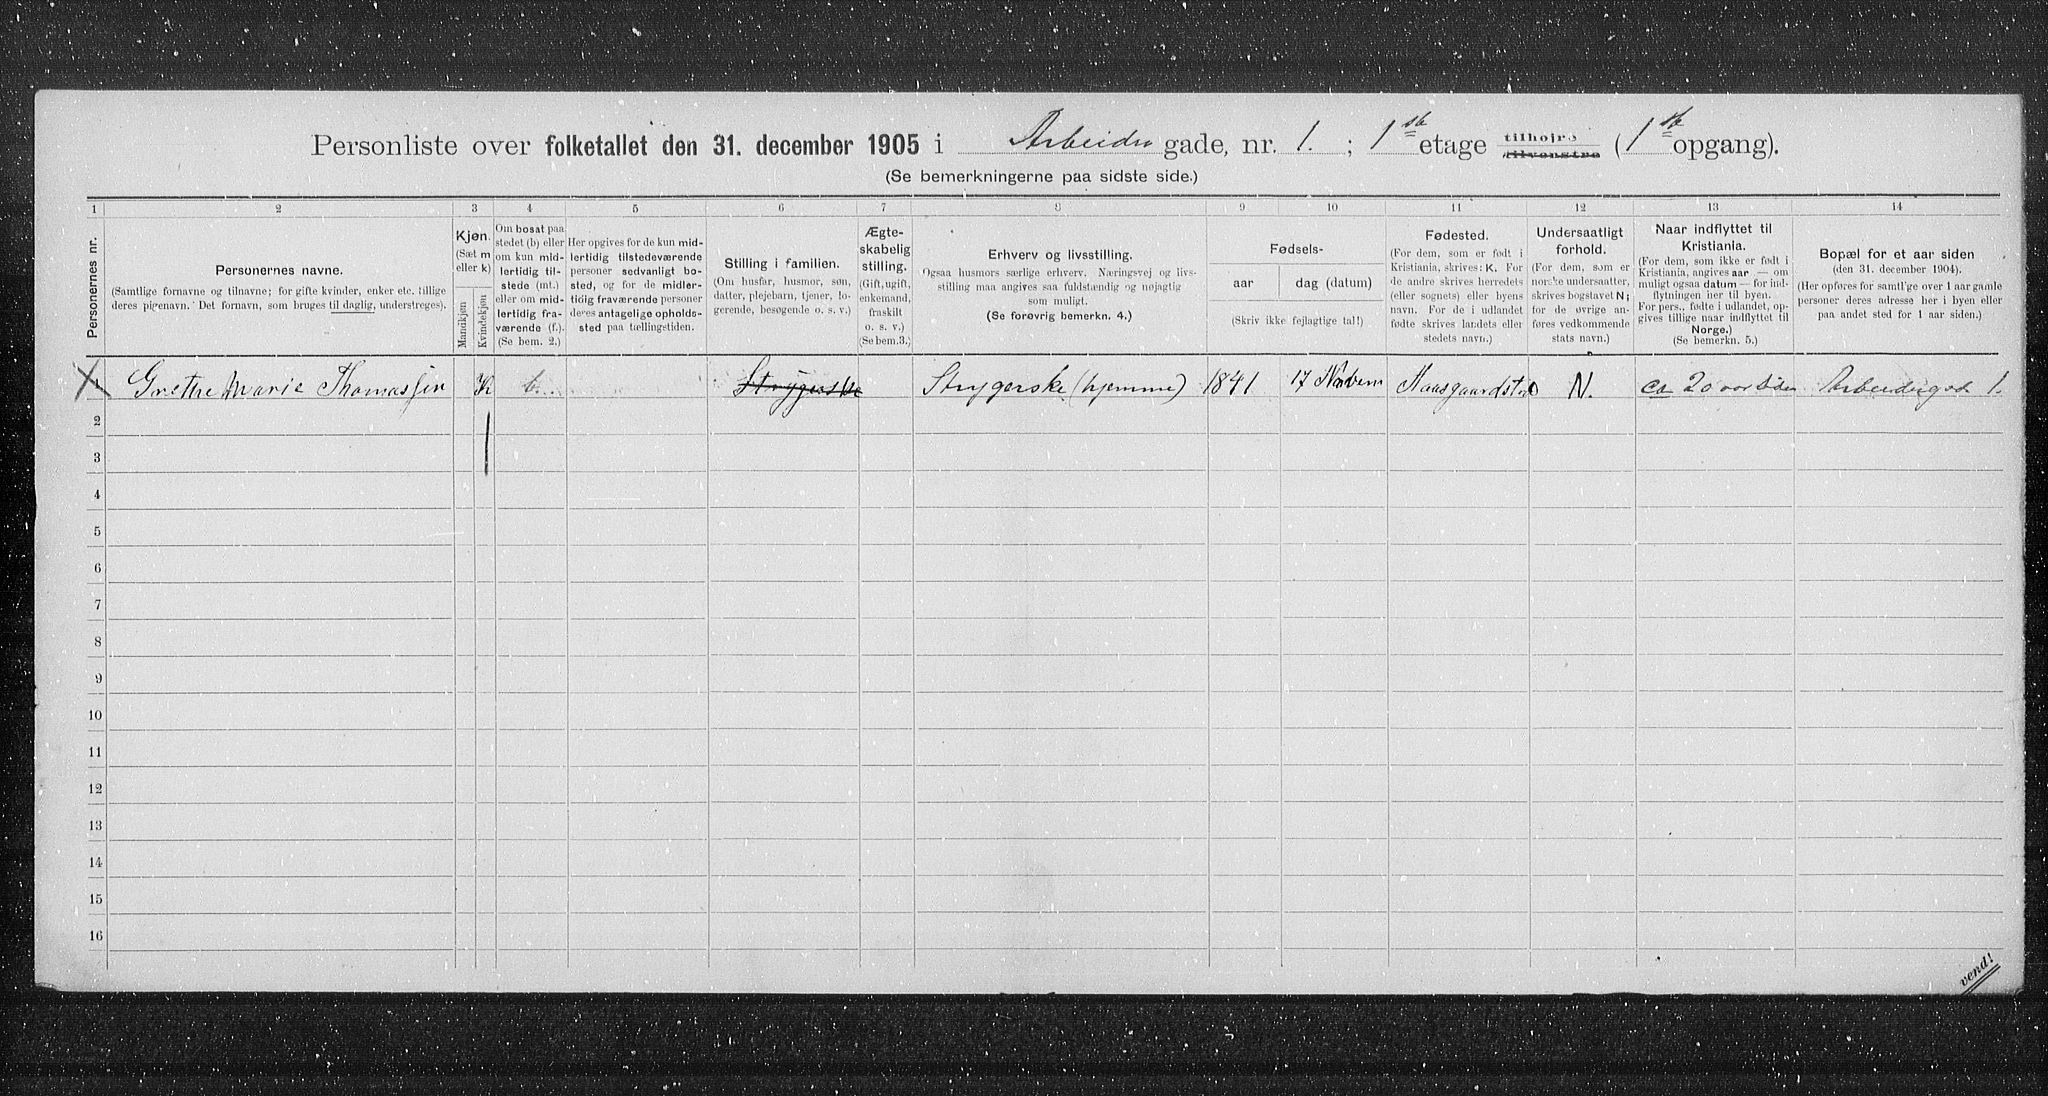 Personliste over folketallet den 31. december 1905 i Arbeider gade, nr. 1. ; 1ste etage tilhøjre tilvenstre (1ste opgang).
(Se bemerkningerne paa sidste side.)
1 2 3 4 5 6 7 8 9 10 11 12 13 14
Personernes nr.
Personernes navne.
(Samtlige fornavne og tilnavne; for gifte kvinder, enker etc. tillige
deres pigenavn. Det fornavn, som bruges til daglig, understreges).
Kjøn.
(Sæt m
eller k)
Mandkjøn
Kvindekjøn
Om bosat paa
stedet (b) eller
om kun mid-
lertidig til-
stede (mt.)
eller om mid-
lertidig fra-
værende (f.).
(Se bem. 2.)
Her opgives for de kun mid-
lertidig tilstedeværende
personer sedvanligt bo-
sted, og for de midler-
tidig fraværende personer
deres antagelige opholds-
sted paa tællingstiden.
Stilling i familien.
(Om husfar, husmor, søn,
datter, plejebarn, tjener, lo-
gerende, besøgende o. s. v.)
Ægte-
skabelig
stilling.
(Gift, ugift,
enkemand,
fraskilt
o. s. v.)
(Se bem.3.)
Erhverv og livsstilling.
Ogsaa husmors særlige erhverv. Næringsvej og livs-
stilling maa angives saa fuldstændig og nøjagtig
som muligt.
(Se forøvrig bemerkn. 4.)
Fødsels-
aar dag (datum)
(Skriv ikke fejlagtige tal!)
Fødested.
(For dem, som er født i
Kristiania, skrives: K. For
de andre skrives herredets
(eller sognets) eller byens
navn. For de i udlandet
fødte skrives landets eller
stedets navn.)
Undersaatligt
forhold.
(For dem, som er
norske undersaatter,
skrives bogstavet N;
for de øvrige an-
føres vedkommende
stats navn.)
Naar indflyttet til
Kristiania.
(For dem, som ikke er født i
Kristiania, angives aar — om
muligt ogsaa datum — for ind-
flytningen her til byen.
For pers., fødte i udlandet, op-
gives tillige naar indflyttet til
Norge.)
(Se bemerkn. 5.)
Bopæl for et aar siden
(den 31. december 1904).
(Her opføres for samtlige over 1 aar gamle
personer deres adresse her i byen eller
paa andet sted for 1 aar siden.)
1 Grethe Marie Thomassen K b. Strygerske Strygerske (hjemme) 1841 17 Novbm Aasgaardstrd N. ca 20 aar siden Arbeidergad 1.
2
3
4
5
6
7
8
9
10
11
12
13
14
15
16
vend!